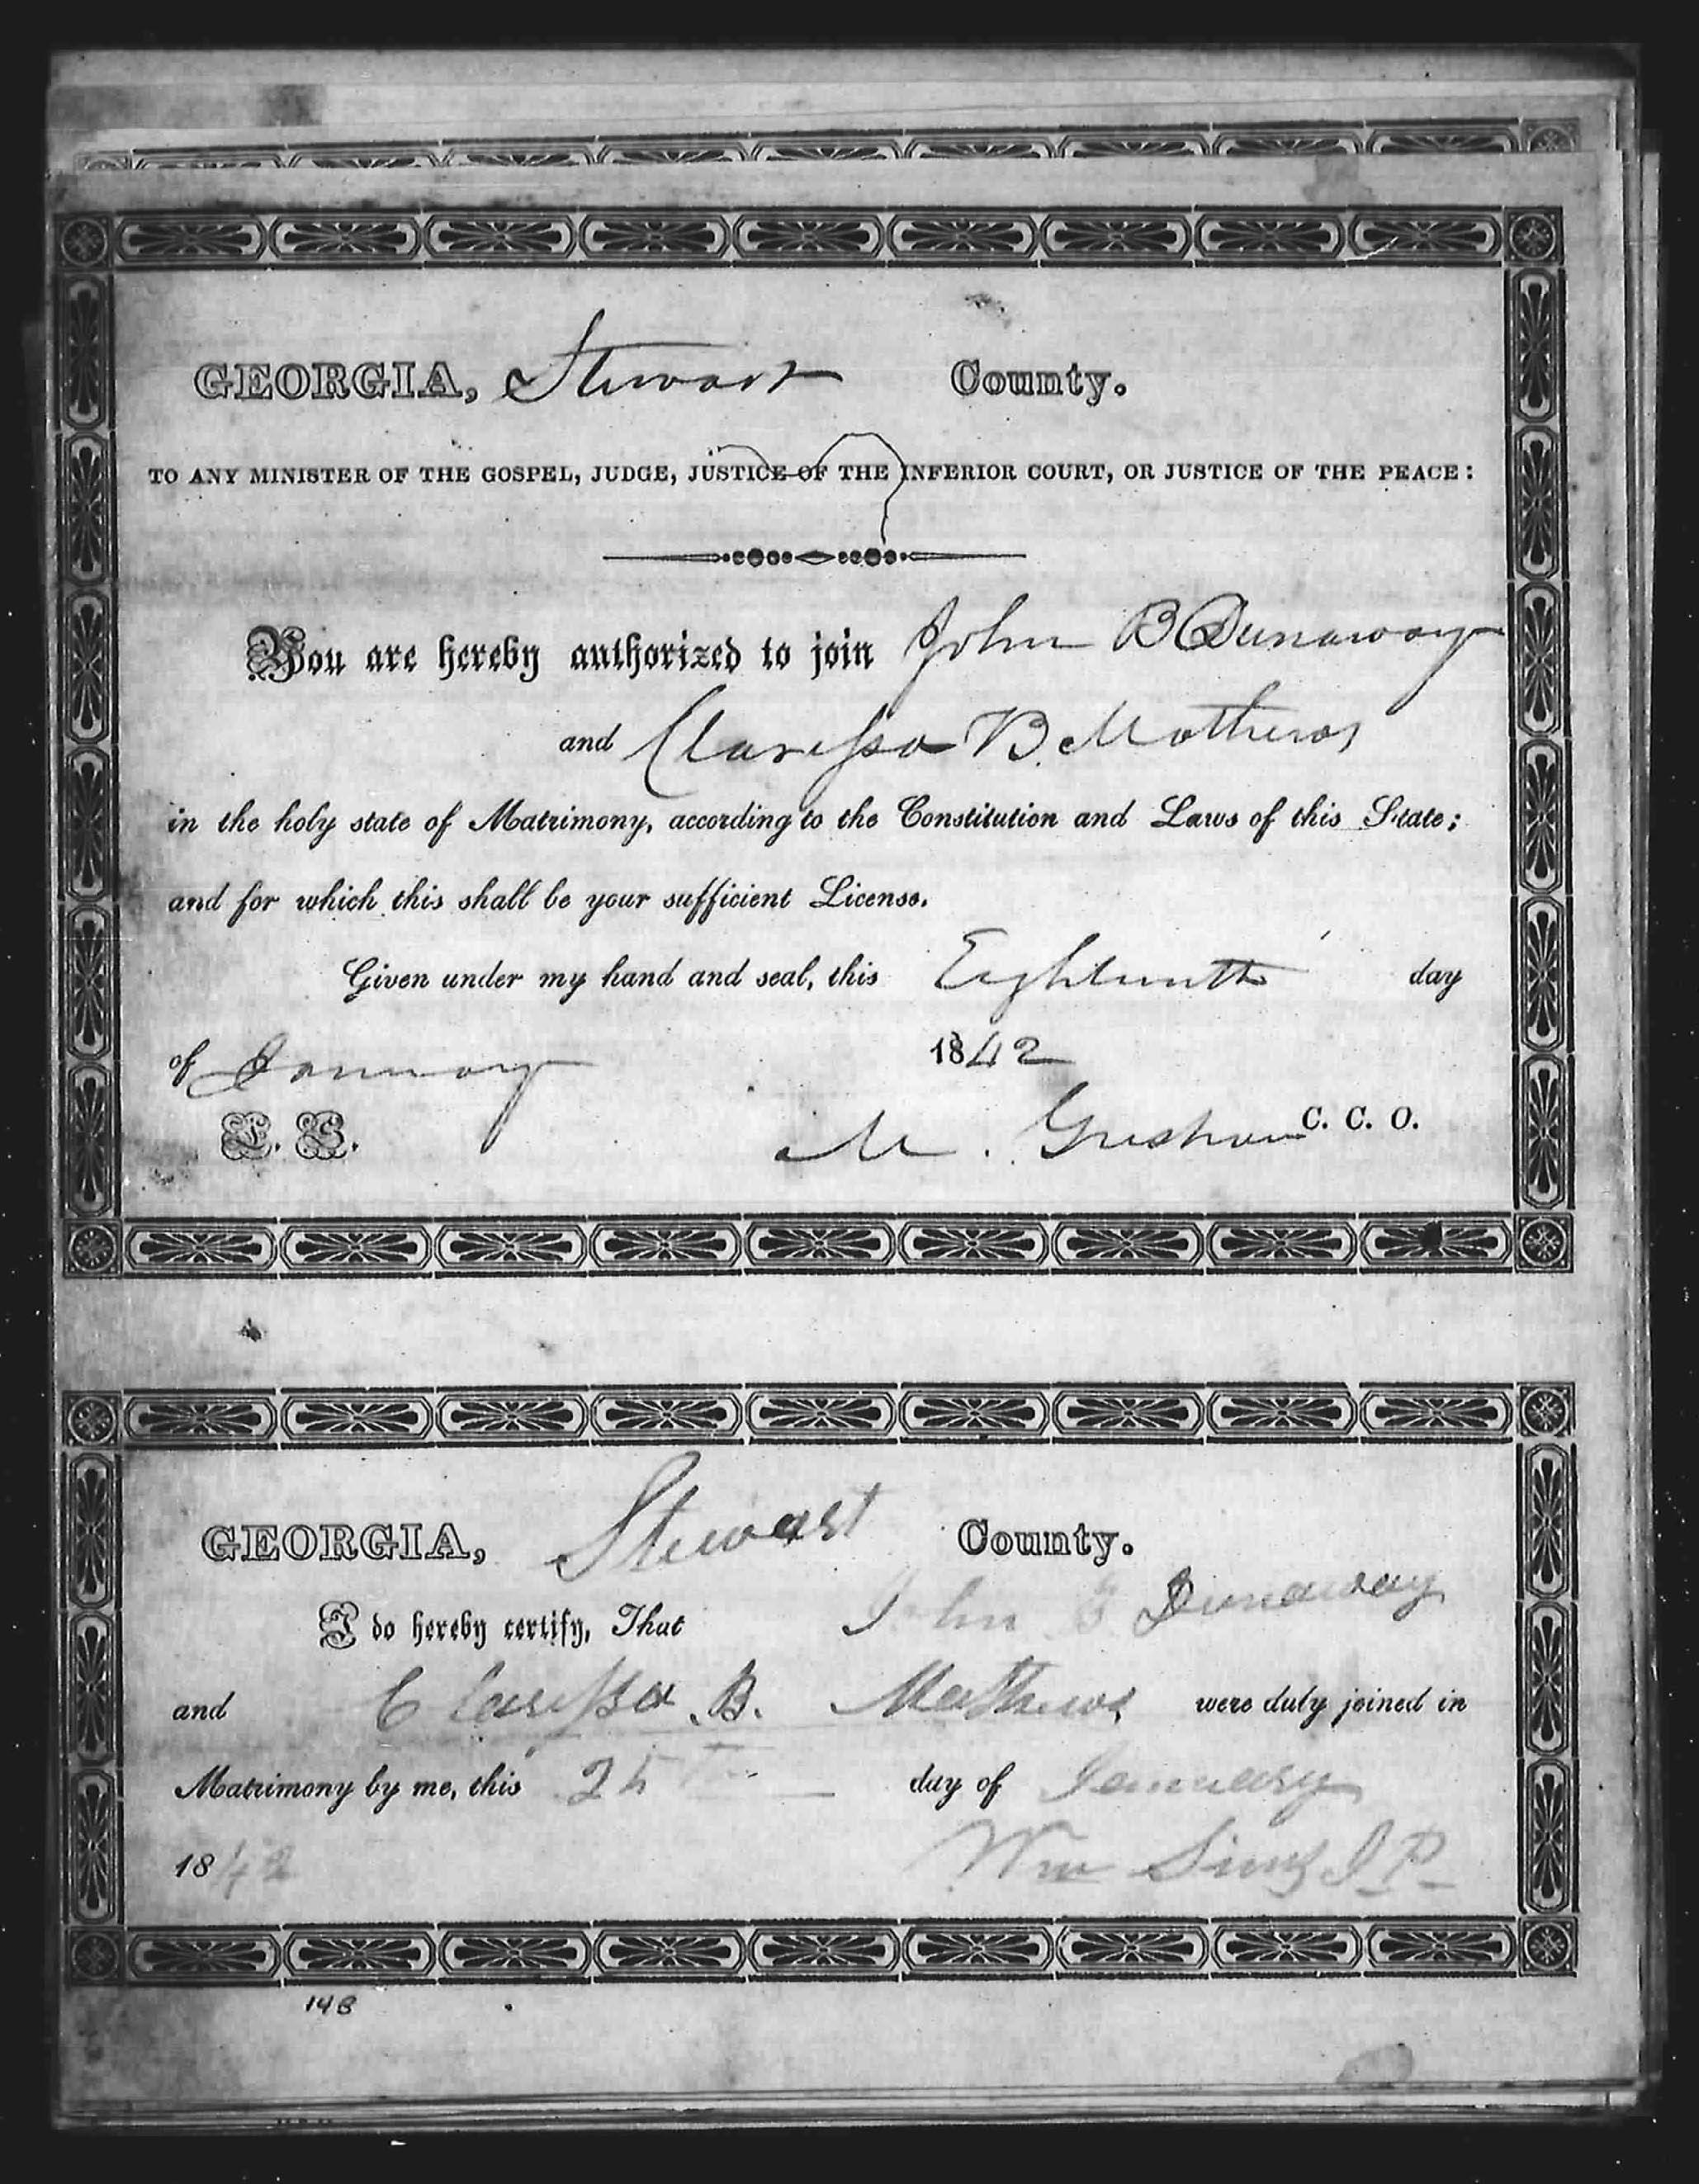 GEORGIA, Stewart County.
TO ANY MINISTER OF THE GOSPEL, JUDGE, JUSTICE OF THE INFERIOR COURT, OR JUSTICE OF THE PEACE:
You are hereby authorized to join John B Dunaway
and Clarissa B. Mathews
in the holy state of Matrimony, according to the Constitution and Laws of this State;
and for which this shall be your sufficient License.
Given under my hand and seal, this Eighteenth day
of January 1842
L. S. M. Gresham C. C. O.
GEORGIA, Stewart County.
I do hereby certify, That John Dunaway
and Clarissa B. Mathews were duly joined in
Matrimony by me, this 25 day of January
1842 Wm Sims J. P.
148